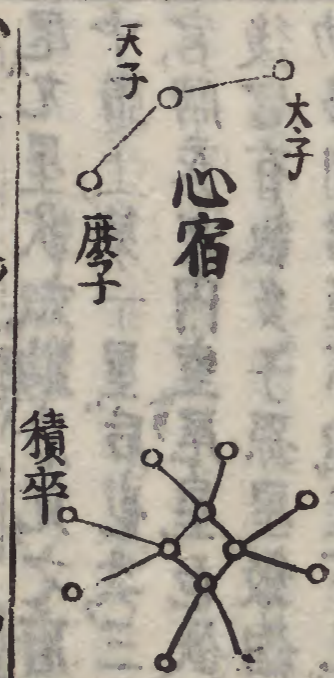 太子
天子
心宿
庶子
積卒